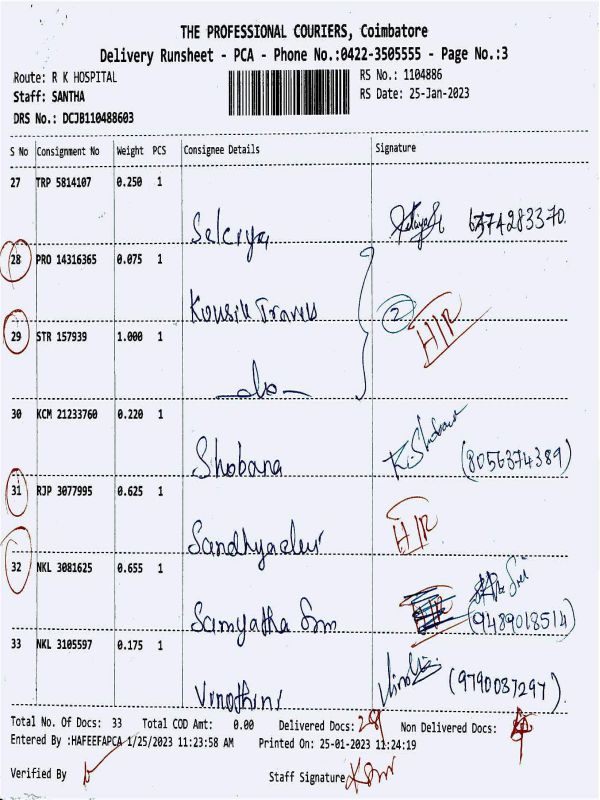 THE PROFESSIONAL COURIERS, Coimbatore
Delivery Runsheet - PCA - Phone No.:0422-3505555 - Page No.:3
Route: R K HOSPITAL
RS No.: 1104886
Staff: SANTHA
RS Date: 25-Jan-2023
DRS No.: DCJB110488603
S No Consignment No Weight PCS Consignee Details Signature
27 TRP 5814107 0.250 1
Selciya 6374283370
28 PRO 14316365 0.075 1
Kousik Travels 2 H/R
29 STR 157939 1.000 1
do
30 KCM 21233760 0.220 1
Shobana (8056374389)
31 RJP 3077995 0.625 1
Sandhyadevi H/R
32 NKL 3081625 0.655 1
Samyatha (9489018514)
33 NKL 3105597 0.175 1
Vinothini (9790037297)
Total No. Of Docs: 33 Total COD Amt: 0.00 Delivered Docs: 29 Non Delivered Docs:
Entered By :HAFEEFAPCA 1/25/2023 11:23:58 AM Printed On: 25-01-2023 11:24:19
Verified By Staff Signature